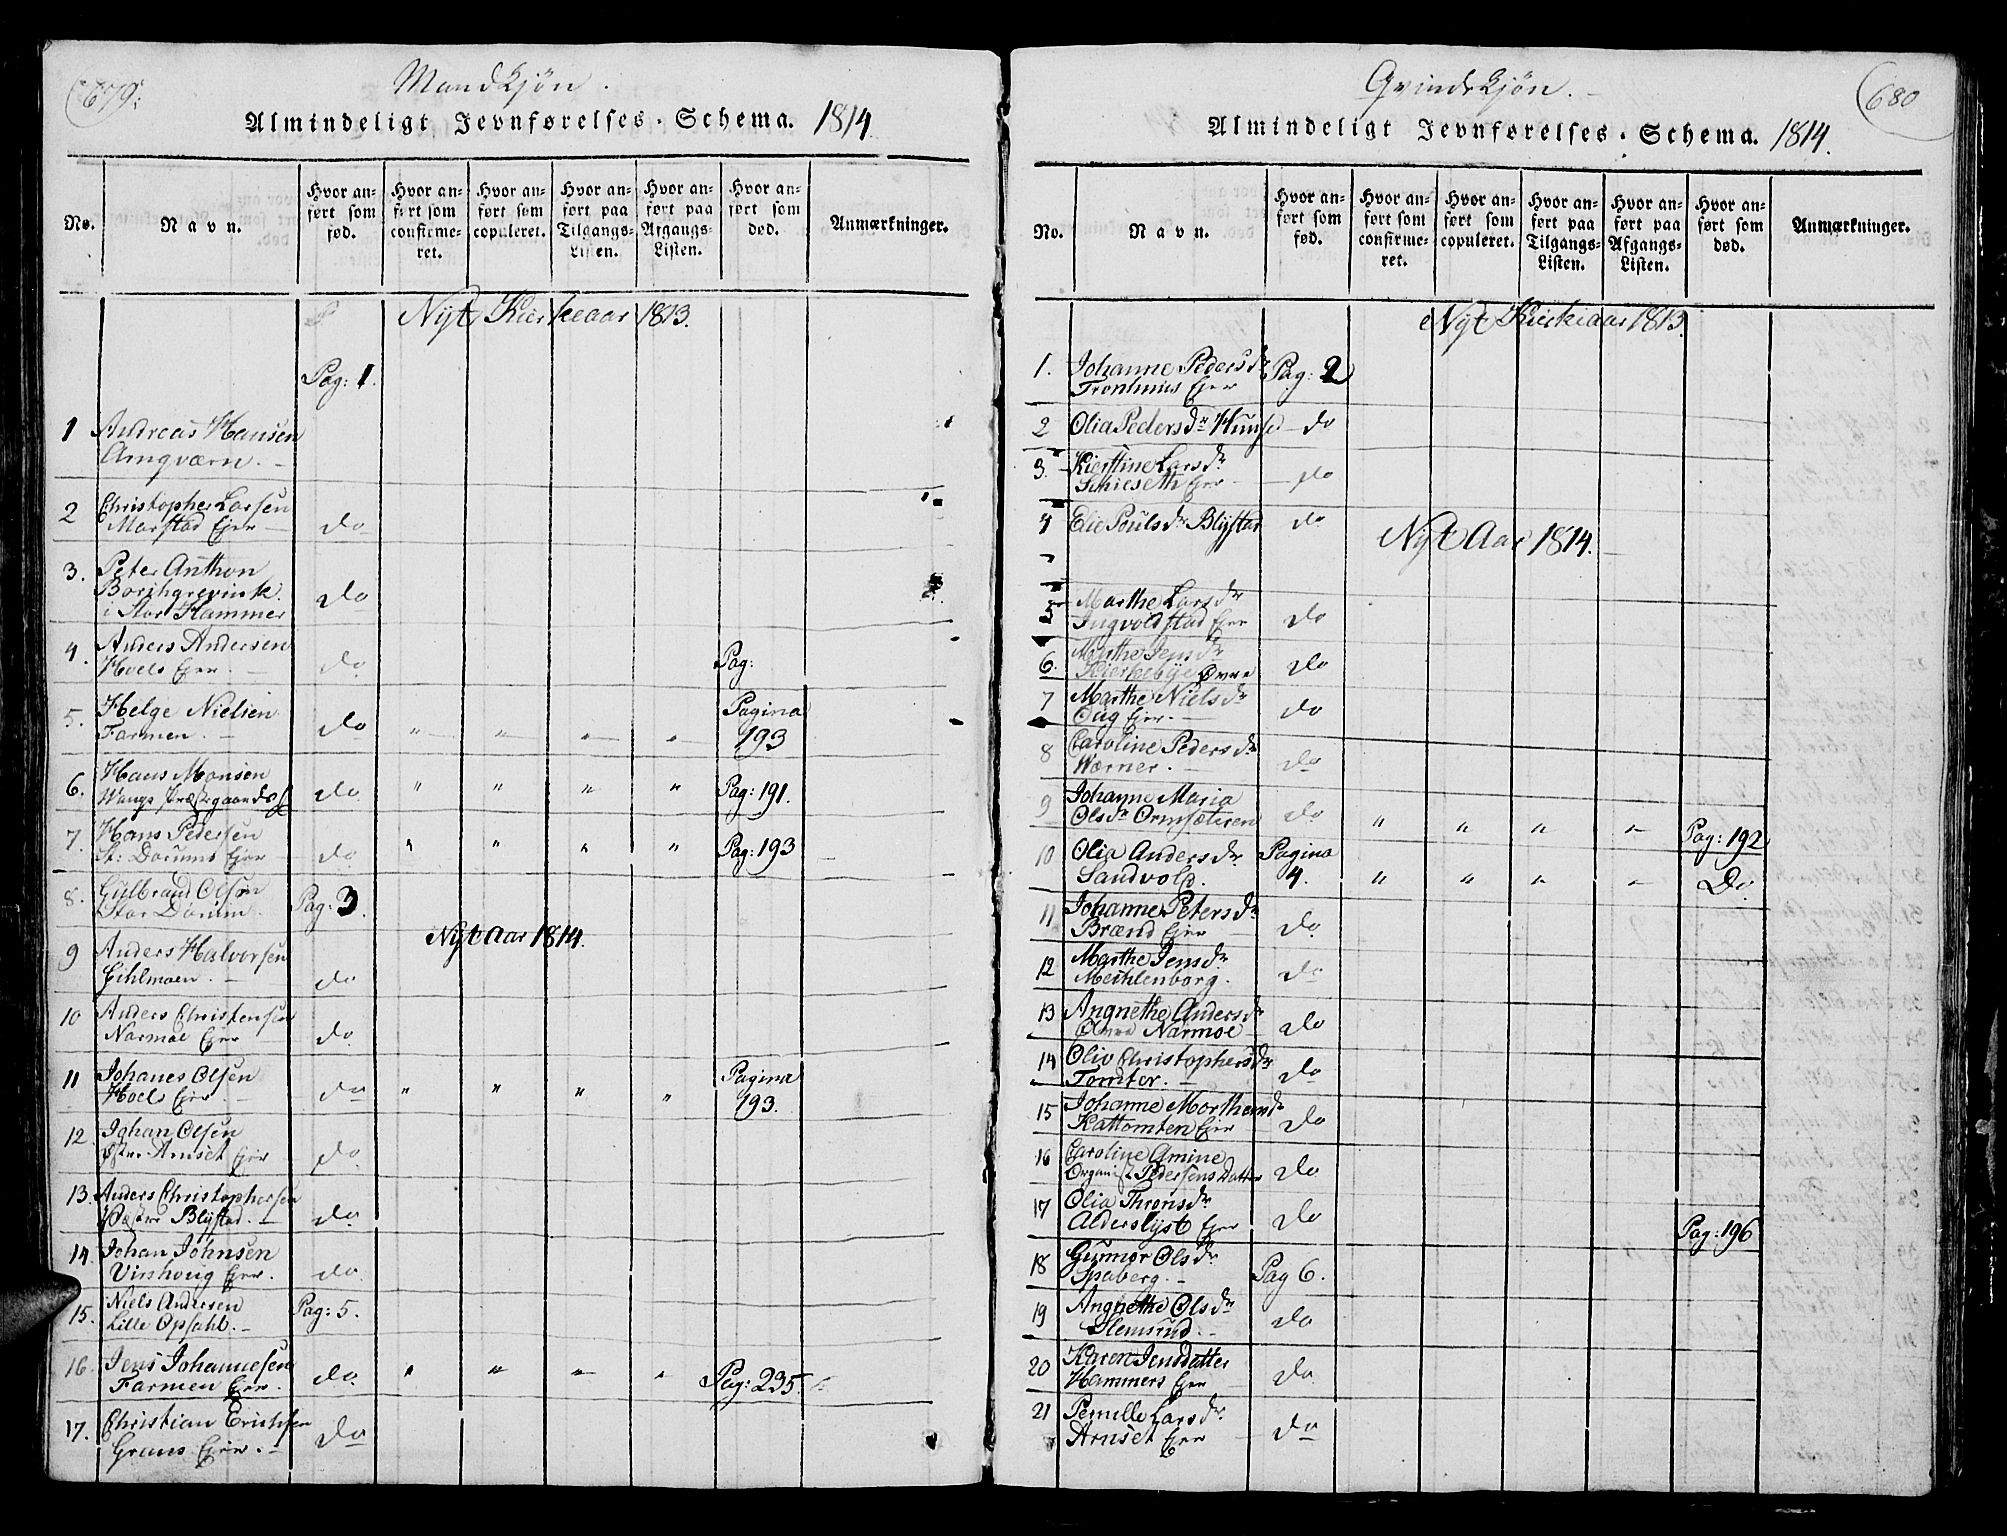 679.
Mandkjøn.
Almindeligt Jevnførelses-Schema. 1814.
No.
Navn.
Hvor an-
ført som
fød.
Hvor an-
ført som
confirme-
ret.
Hvor an-
ført som
copuleret.
Hvor an-
ført paa
Tilgangs-
Listen.
Hvor an-
ført paa
Afgangs-
Listen.
Hvor an-
ført som
død.
Anmærkninger.
Nyt Kierkeaar 1813.
Pag: 1.
1 Andreas Hansen
Arngværn.
2 Christopher Larsen
Marstad Ejer do
3. Peter Anthon
Borchgrevink
i Stor Hammer do
4. Anders Andersen
Hoels Ejer do Pag:
5. Helge Nielsen
Farmen. do " " " " Pagina
193
6. Hans Monsen
Wangs Præstegaards do " " " " Pag: 191.
7. Hans Pedersen
St: Dorums Ejer do " " " " Pag: 193
8. Gulbrand Olsen
Stor Dorum Pag: 3.
Nyt Aar 1814.
9 Anders Halvorsen
Gihlmoen. do
10 Anders Christensen
Narmoe Ejer do
11 Johanes Olsen
Hoels Ejer do " " " " Pagina
193.
12. Johan Olsen
Østre Arnset Ejer do
13. Anders Christophersen
Vestre Blystad. do
14. Johan Johnsen
Vinhoug Ejer. do
15. Niels Andersen
Lille Opsahl. Pag: 5.
16. Jens Johannesen
Farmen Ejer. do " " " " Pag: 235.
17. Christian Erichsen
Gruns Ejer. do
680
Qvindekjøn.
Almindeligt Jevnførelses-Schema. 1814.
No.
Navn.
Hvor an-
ført som
fød.
Hvor an-
ført som
confirme-
ret.
Hvor an-
ført som
copuleret.
Hvor an-
ført paa
Tilgangs-
Listen.
Hvor an-
ført paa
Afgangs-
Listen.
Hvor an-
ført som
død.
Anmærkninger.
Nyt Kierkeaar 1813.
1. Johanne Pedersdr
Tronhuus Ejer Pag: 2
2 Olia Pedersdr Hunsed do
3. Kierstine Larsdr
Schieseth Ejer do
4 Elie Poulsdr Blystad do
Nyt Aar 1814.
5 Marthe Larsdr
Ingvoldstad Ejer do
6. Marthe Jensdr
Kierkebye Øvre do
7 Marthe Nielsdr
Oug Ejer. do
8 Caroline Pedersdr
Wærner. do
9 Johanne Maria
Olsdr Ormsæteren do " " " " Pag: 192
10 Olia Andersdr
Sandvold. Pagina
4. " " " " Do
11 Johanne Petersdr
Brænd Ejer do
12 Marthe Jensdr
Mechlenborg. do
13 Angnethe Andersdr
Øvre Narmoe do
14 Oliv Christophersdr
Tomter. do
15 Johanne Morthensdr
Kattomten Ejer do
16 Caroline Amine
Organist Pedersens Datter do
17 Olia Thronsdr
Alderslyst Ejer do Pag: 196
18 Gunnor Olsdr
Spaberg. Pag 6.
19 Angnethe Olsdr
Slemsrud. do
20 Karen Jensdatter
Hammers Ejer do
21 Pernille Larsdr
Arnset Ejer do